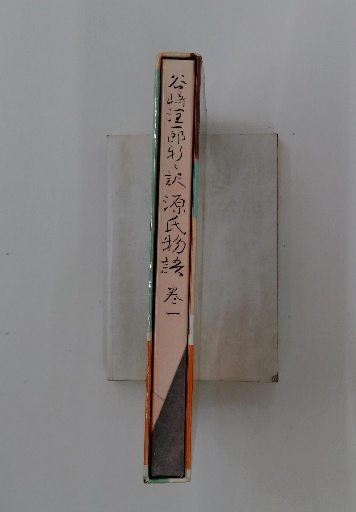 谷崎潤一郎新々訳 源氏物語 巻一